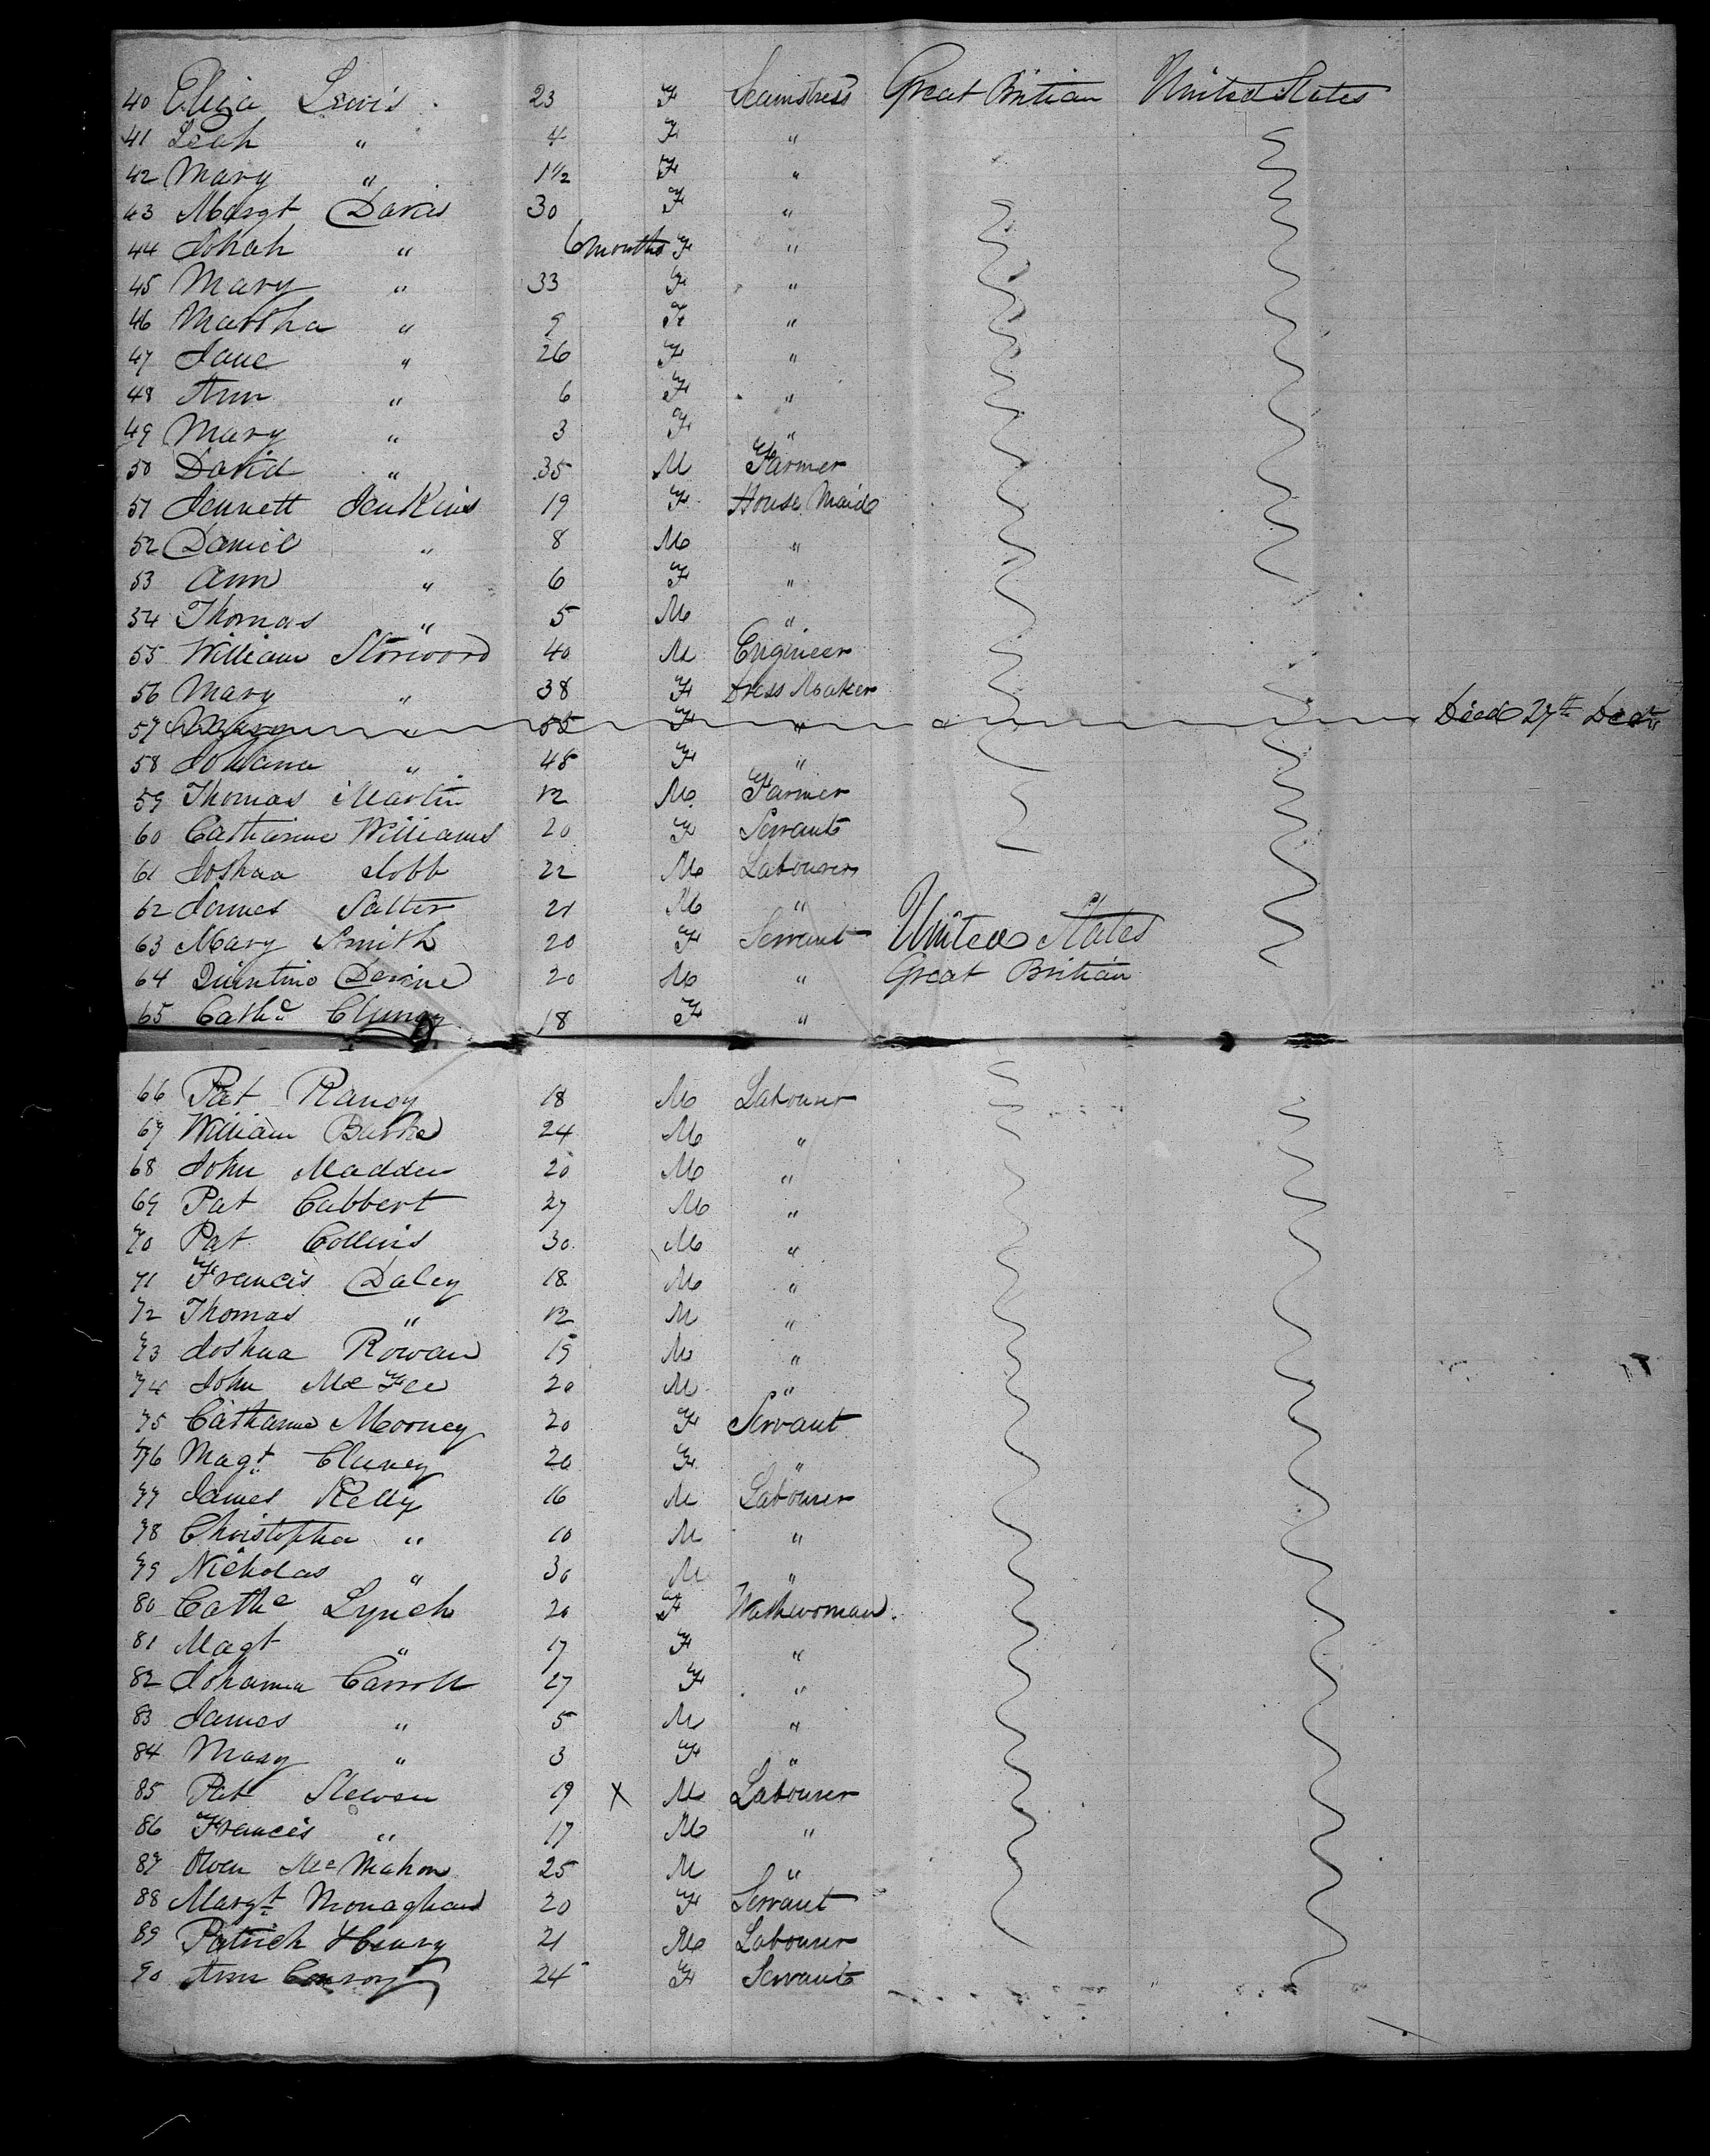 40 Eliza Lewis 23 F Seamstress Great Britian United States
41 Leah " 4 F "
42 Mary " 1 1/2 F "
43 Margt Davis 30 F "
44 Johah " 6 months F "
45 Mary " 33 F "
46 Martha " 9 F "
47 Jane " 26 F "
48 Ann " 6 F "
49 Mary " 3 F "
50 David " 35 M Farmer
51 Jennett Jenkins 19 F House Maid
52 Daniel " 8 M "
53 Ann " 6 F "
54 Thomas " 5 M "
55 William Norwood 40 M Engineer
56 Mary " 38 F Dress Maker
57 " 55 F " Died 27th Decr
58 Johana " 48 F "
59 Thomas Martin 12 M Farmer
60 Catharine Williams 20 F Servant
61 Joshua Jobb 22 M Labourer
62 James Salter 21 M "
63 Mary Smith 20 F Servant United States
64 Quintino Devine 20 M " Great Britian
65 Cathe 18 F "
66 Pat 18 M Labourer
67 William Burke 24 M "
68 John Madden 20 M "
69 Pat Cabbert 27 M "
70 Pat Collins 30 M "
71 Francis Daley 18 M "
72 Thomas " 12 M "
73 Joshua Rowan 19 M "
74 John McFee 20 M "
75 Catharine Mooney 20 F Servant
76 Magt Cluney 20 F "
77 James Kelly 16 M Labourer
78 Christopher " 10 M "
79 Nicholas " 30 M "
80 Cathe Lynch 20 F Washwoman.
81 Magt " 17 F "
82 Johanna Carroll 27 F "
83 James " 5 M "
84 Mary " 3 F "
85 Pat Slevin 19 X M Labourer
86 Francis " 17 M "
87 Owen McMahon 25 M "
88 Margt Monaghan 20 F Servant
89 Patrick Henry 21 M Labourer
90 Ann Conroy 24 F Servant